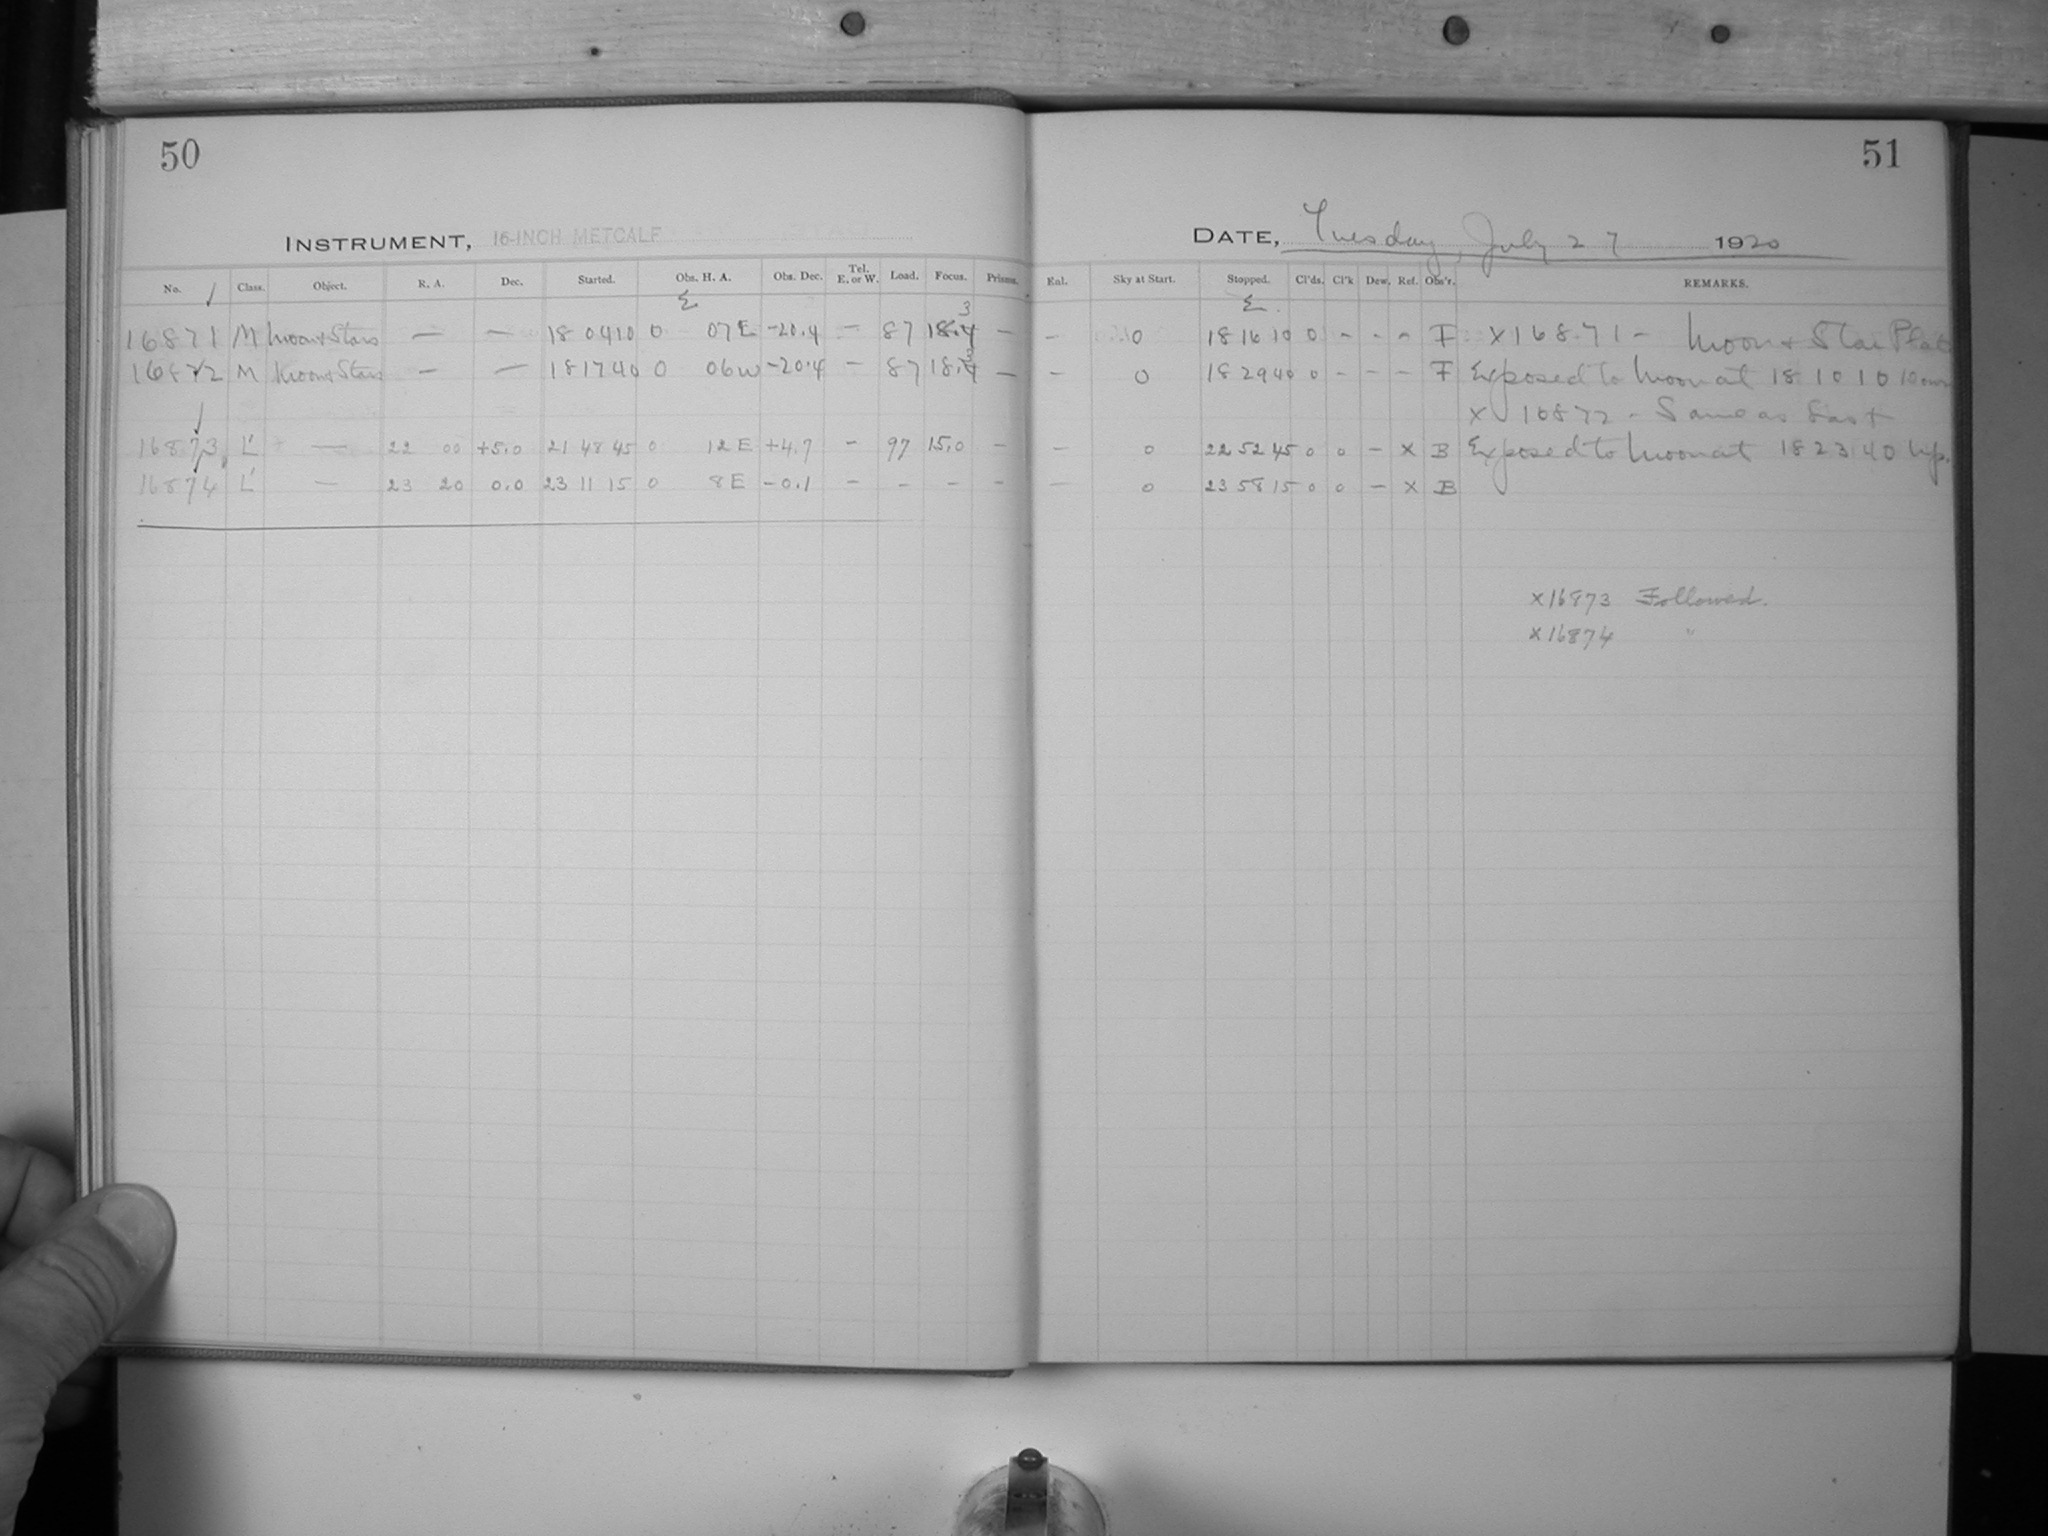 50
INSTRUMENT, 16-INCH METCALF
No. Class. Object. R. A. Dec. Started. Obs. H. A. Obs. Dec. Tel. E. or W. Load. Focus. Prisms.
Σ
3
16871 M Moon & Stars — — 18 04 10 0 07 E -20.4 — 87 18.4 —
16872 M Moon & Stars — — 18 17 40 0 06 W -20.4 — 87 18.4 —
16873 L' — 22 00 +5.0 21 48 45 0 12 E +4.7 — 97 15.0 —
16874 L' — 23 20 0.0 23 11 15 0 8 E -0.1 — - - -
51
DATE, Tuesday, July 27 1920
Eal. Sky at Start. Stopped. Cl'ds. Cl'k Dew. Ref. Obs'r. REMARKS.
Σ
- 0 18 16 10 0 - - - F X 16871 - Moon & Star Plate
- 0 18 29 40 0 - - - F Exposed to Moon at 18 10 10
X 16872 - Same as last
- 0 22 52 45 0 0 - X B Exposed to Moon at 18 23 40
- 0 23 58 15 0 0 - X B
X16873 Followed.
X16874 "